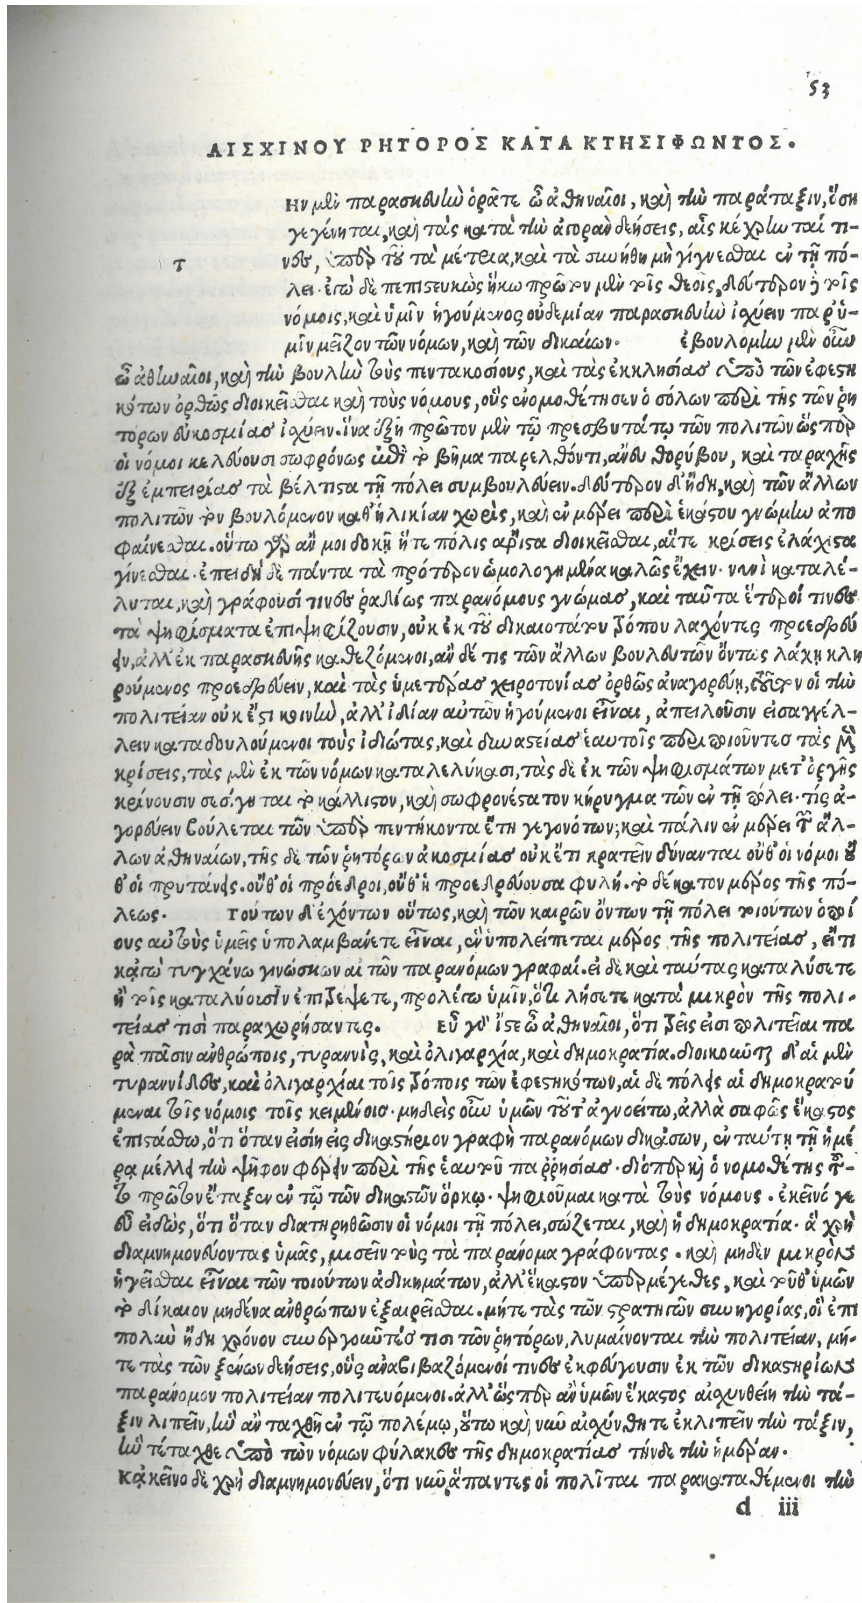 53
ΑΙΣΧΙΝΟΥ ΡΗΤΟΡΟΣ ΚΑΤΑ ΚΤΗΣΙΦΩΝΤΟΣ.
Ην μὲν παρασκευὴν ὁρᾶτε ὦ ἀθηναῖοι, καὶ τὴν παράταξιν, ὅση
γεγένηται, καὶ τὰς κατὰ τὴν ἀγορὰν δεήσεις, αἷς κέχρηνταί τι-
τ νες, ὑπὲρ τοῦ τὰ μέτρια, καὶ τὰ συνήθη μὴ γίγνεσθαι ἐν τῇ πό-
λει. ἐγὼ δὲ πεπιστευκὼς ἥκω πρῶτον μὲν τοῖς θεοῖς, δεύτερον δὲ τοῖς
νόμοις, καὶ ὑμῖν ἡγούμενος οὐδεμίαν παρασκευὴν ἰσχύειν παρ' ὑ-
μῖν μεῖζον τῶν νόμων, καὶ τῶν δικαίων. ἐβουλόμην μὲν οὖν
ὦ ἀθηναῖοι, καὶ τὴν βουλὴν τοὺς πεντακοσίους, καὶ τὰς ἐκκλησίας ὑπὸ τῶν ἐφεστη
κότων ὀρθῶς διοικεῖσθαι καὶ τοὺς νόμους, οὓς ἐνομοθέτησεν ὁ σόλων περὶ τῆς τῶν ῥη
τόρων εὐκοσμίας ἰσχύειν. ἵνα ἐξῇ πρῶτον μὲν τῷ πρεσβυτάτῳ τῶν πολιτῶν ὥσπερ
οἱ νόμοι κελεύουσι σωφρόνως ἐπὶ τὸ βῆμα παρελθόντι, ἄνευ θορύβου, καὶ ταραχῆς
ἐξ ἐμπειρίας τὰ βέλτιστα τῇ πόλει συμβουλεύειν. δεύτερον δ' ἤδη, καὶ τῶν ἄλλων
πολιτῶν τὸν βουλόμενον καθ' ἡλικίαν χωρὶς, καὶ ἐν μέρει περὶ ἑκάστου γνώμην ἀπο
φαίνεσθαι. οὕτω γὰρ ἄν μοι δοκῇ ἥ τε πόλις ἄριστα διοικεῖσθαι, αἵτε κρίσεις ἐλάχισται
γίνεσθαι. ἐπειδὴ δὲ πάντα τὰ πρότερον ὡμολογημένα καλῶς ἔχειν. νυνὶ καταλέ-
λυται, καὶ γράφουσί τινες ῥαδίως παρανόμους γνώμας, καὶ ταῦτα ἕτεροί τινες
τὰ ψηφίσματα ἐπιψηφίζουσιν, οὐκ ἐκ τοῦ δικαιοτάτου τρόπου λαχόντες προεδρεύ
ειν, ἀλλ' ἐκ παρασκευῆς καθεζόμενοι, ἂν δέ τις τῶν ἄλλων βουλευτῶν ὄντως λάχῃ κλη
ρούμενος προεδρεύειν, καὶ τὰς ὑμετέρας χειροτονίας ὀρθῶς ἀναγορεύῃ, τοῦτον οἱ τὴν
πολιτείαν οὐκ ἔτι κοινὴν, ἀλλ' ἰδίαν αὑτῶν ἡγούμενοι εἶναι, ἀπειλοῦσιν εἰσαγγέλ-
λειν καταδουλούμενοι τοὺς ἰδιώτας, καὶ δυναστείας ἑαυτοῖς περιποιοῦντες τὰς μὲν
κρίσεις, τὰς μὲν ἐκ τῶν νόμων καταλελύκασι, τὰς δὲ ἐκ τῶν ψηφισμάτων μετ' ὀργῆς
κρίνουσιν σεσίγηται τὸ κάλλιστον, καὶ σωφρονέστατον κήρυγμα τῶν ἐν τῇ πόλει. τίς ἀ-
γορεύειν βούλεται τῶν ὑπὲρ πεντήκοντα ἔτη γεγονότων; καὶ πάλιν ἐν μέρει τῶν ἄλ-
λων ἀθηναίων, τῆς δὲ τῶν ῥητόρων ἀκοσμίας οὐκ ἔτι κρατεῖν δύνανται οὔθ' οἱ νόμοι οὔ
θ' οἱ πρυτάνεις. οὔθ' οἱ πρόεδροι, οὔθ' ἡ προεδρεύουσα φυλή. τὸ δέκατον μέρος τῆς πό-
λεως. τούτων δ' ἐχόντων οὕτως, καὶ τῶν καιρῶν ὄντων τῇ πόλει τοιούτων ὁποί
ους αὐτοὺς ὑμεῖς ὑπολαμβάνετε εἶναι, ἓν ὑπολείπεται μέρος τῆς πολιτείας, εἴ τι
κἀγὼ τυγχάνω γινώσκων αἱ τῶν παρανόμων γραφαί. εἰ δὲ καὶ ταύτας καταλύσετε
ἢ τοῖς καταλύουσιν ἐπιτρέψετε, προλέγω ὑμῖν, ὅτι λήσετε κατὰ μικρὸν τῆς πολι-
τείας τισὶ παραχωρήσαντες. Εὖ γὰρ ἴστε ὦ ἀθηναῖοι, ὅτι τρεῖς εἰσι πολιτεῖαι πα
ρὰ πᾶσιν ἀνθρώποις, τυραννὶς, καὶ ὀλιγαρχία, καὶ δημοκρατία. διοικοῦνται δ' αἱ μὲν
τυραννίδες, καὶ ὀλιγαρχίαι τοῖς τρόποις τῶν ἐφεστηκότων, αἱ δὲ πόλεις αἱ δημοκρατού
μεναι τοῖς νόμοις τοῖς κειμένοις. μηδεὶς οὖν ὑμῶν τοῦτ' ἀγνοείτω, ἀλλὰ σαφῶς ἕκαστος
ἐπιστάσθω, ὅτι ὅταν εἰσίῃ εἰς δικαστήριον γραφὴ παρανόμων δικάσων, ἐν ταύτῃ τῇ ἡμέ
ρᾳ μέλλει τὴν ψῆφον φέρειν περὶ τῆς ἑαυτοῦ παῤῥησίας. διόπερ καὶ ὁ νομοθέτης τοῦ-
το πρῶτον ἔταξεν ἐν τῷ τῶν δικαστῶν ὅρκῳ. ψηφιοῦμαι κατὰ τοὺς νόμους. ἐκεῖνό γε
εὖ εἰδὼς, ὅτι ὅταν διατηρηθῶσιν οἱ νόμοι τῇ πόλει, σώζεται, καὶ ἡ δημοκρατία. ἃ χρὴ
διαμνημονεύοντας ὑμᾶς, μισεῖν τοὺς τὰ παράνομα γράφοντας. καὶ μηδὲν μικρὸν
ἡγεῖσθαι εἶναι τῶν τοιούτων ἀδικημάτων, ἀλλ' ἕκαστον ὑπερμέγεθες, καὶ τοῦθ' ὑμῶν
τὸ δίκαιον μηδένα ἀνθρώπων ἐξαιρεῖσθαι. μήτε τὰς τῶν στρατηγῶν συνηγορίας, οἳ ἐπὶ
πολὺν ἤδη χρόνον συνεργοῦντές τισι τῶν ῥητόρων, λυμαίνονται τὴν πολιτείαν, μή-
τε τὰς τῶν ξένων δεήσεις, οὓς ἀναβιβαζόμενοί τινες ἐκφεύγουσιν ἐκ τῶν δικαστηρίων
παράνομον πολιτείαν πολιτευόμενοι. ἀλλ' ὥσπερ ἂν ὑμῶν ἕκαστος αἰσχυνθείη τὴν τά-
ξιν λιπεῖν, ἣν ἂν ταχθῇ ἐν τῷ πολέμῳ, οὕτω καὶ νῦν αἰσχύνθητε ἐκλιπεῖν τὴν τάξιν,
ἣν τέταχθε ὑπὸ τῶν νόμων φύλακες τῆς δημοκρατίας τήνδε τὴν ἡμέραν.
Κἀκεῖνο δὲ χρὴ διαμνημονεύειν, ὅτι νῦν ἅπαντες οἱ πολῖται παρακαταθέμενοι τὴν
d iii